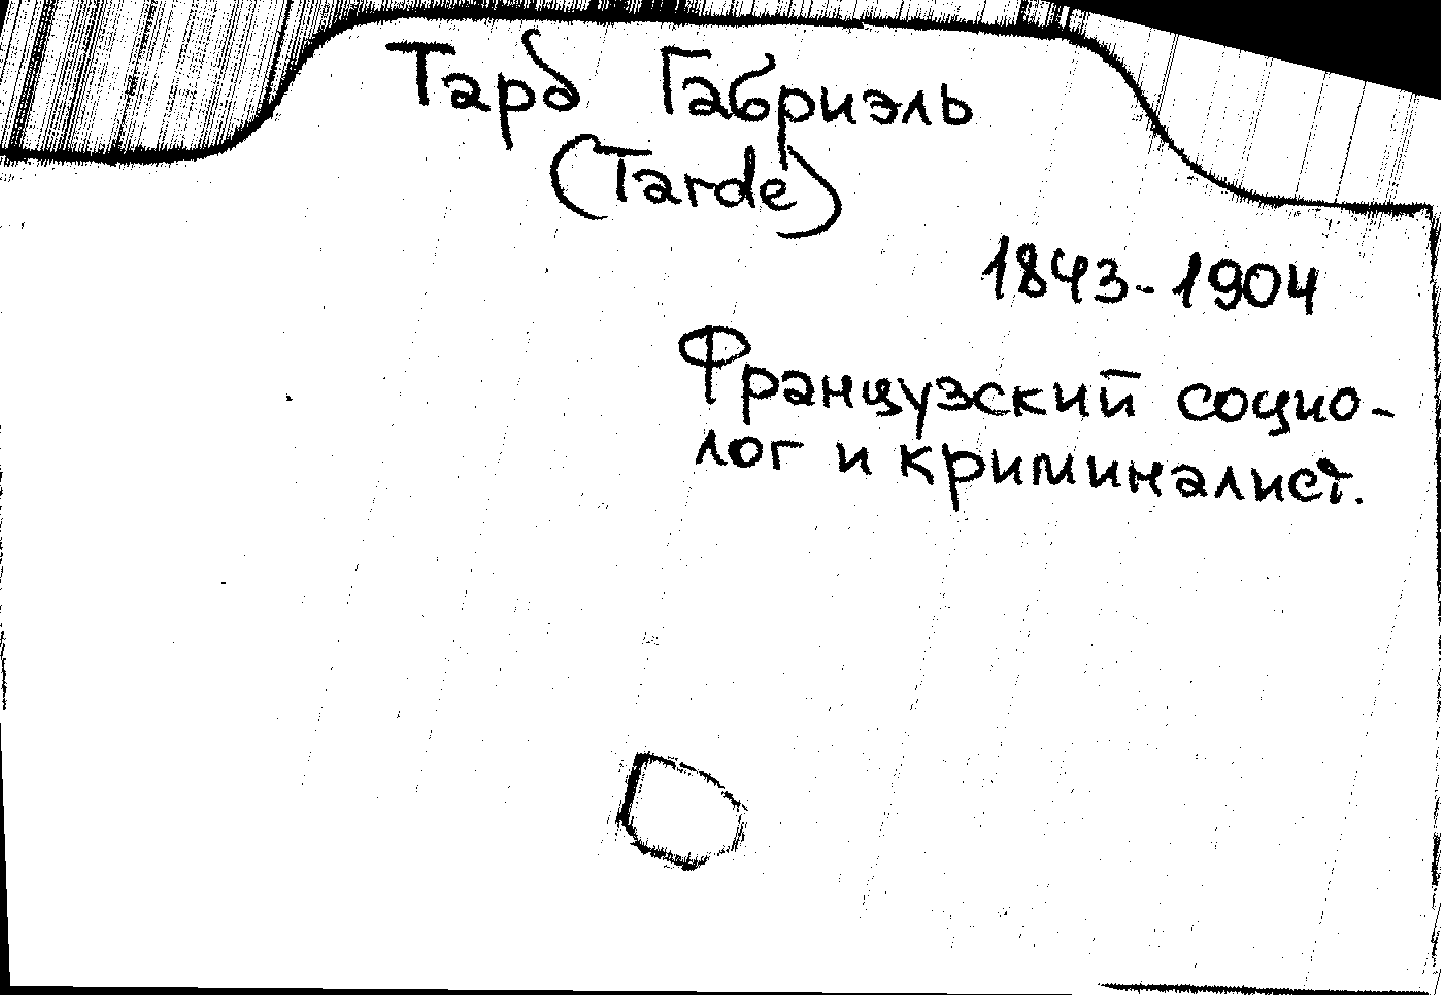 Тард Габриэль
(Tarde)
1843-1904
Французский социо-
лог и криминалист.